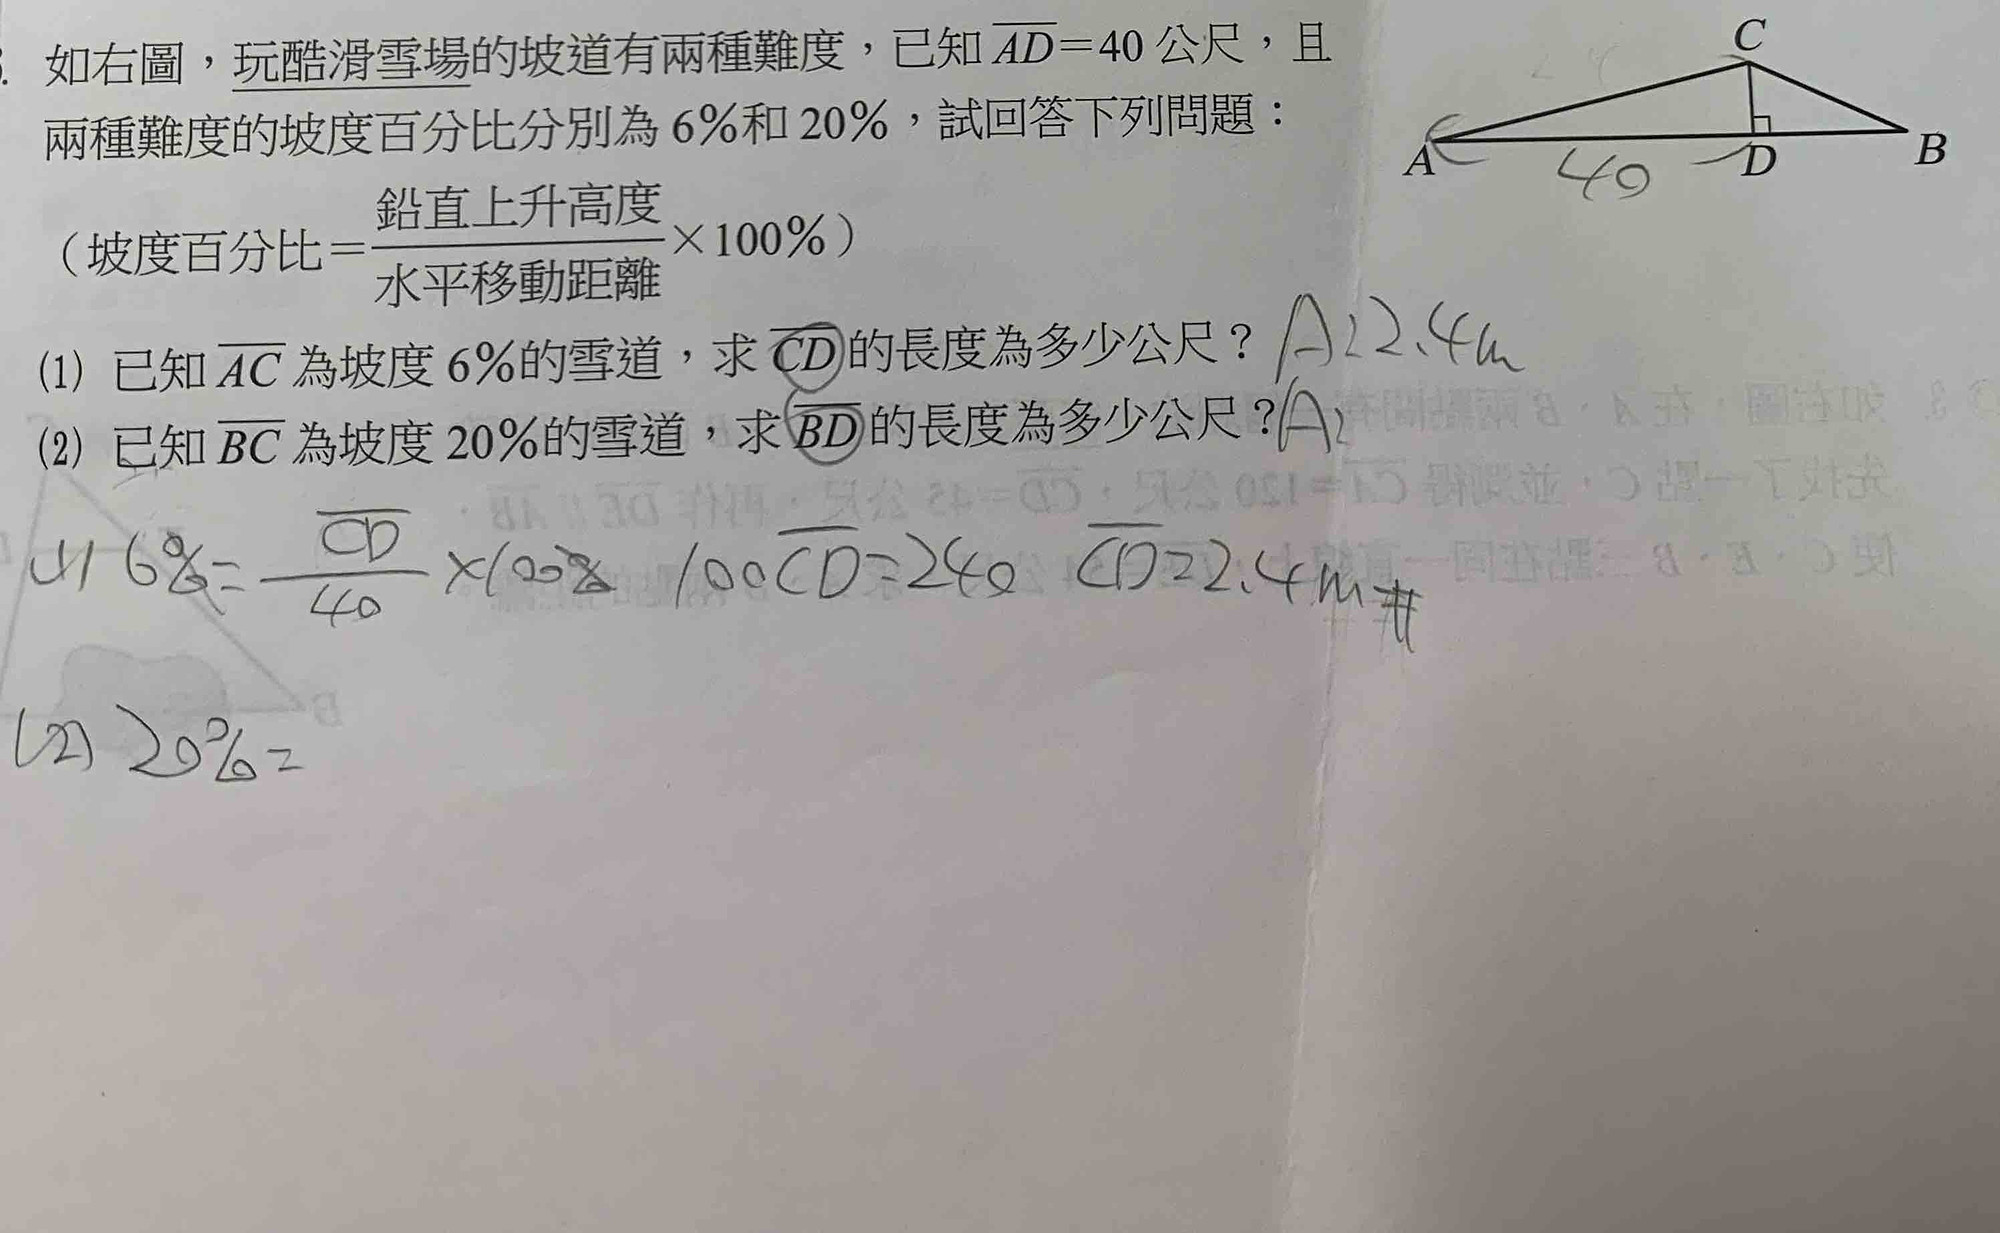 如右圖，玩酷滑雪場的坡道有兩種難度，已知 AD=40 公尺，且
兩種難度的坡度百分比分別為 6%和 20%，試回答下列問題：
（坡度百分比=鉛直上升高度/水平移動距離×100%）
C
A
D
B
40
(1) 已知 AC 為坡度 6%的雪道，求 CD 的長度為多少公尺？ A:2.4m
(2) 已知 BC 為坡度 20%的雪道，求 BD 的長度為多少公尺？ A:
(1) 6%= CD/40 ×100% 100CD=240 CD=2.4m#
(2) 20%=